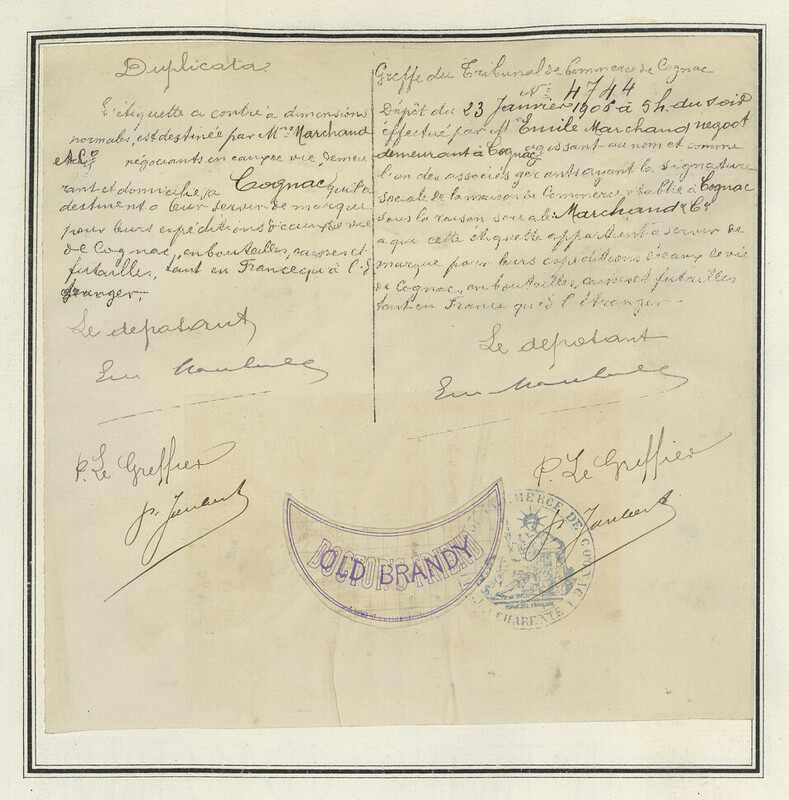 Duplicata
L'étiquette ci contre à dimensions
normales, est destinée par Mrs Marchand
et Co négociants en eaux de vie demeu
rant et domiciliés à Cognac qu'ils
destinent à leur servir de marque
pour leurs expéditions d'eaux de vie
de Cognac, en bouteilles, caisses et
futailles, tant en France qu'à l'é
tranger.
Le déposant
P. Le Greffier
P. Jaubert
Greffe du Tribunal de Commerce de Cognac
No 4744
Dépôt du 23 Janvier 1906 à 5 h. du soir
effectué par Mr Emile Marchand négoct
demeurant à Cognac agissant au nom et comme
l'un des associés gérants ayant la signature
sociale de la maison de Commerce établie à Cognac
sous la raison sociale Marchand & Co
a que cette étiquette appartient à servir de
marque pour leurs expéditions d'eaux de vie
de Cognac, en bouteilles, caisses et futailles
tant en France qu'à l'étranger.
Le déposant
P. Le Greffier
P. Jaubert
DOCTOR'S FRIEND
OLD BRANDY
COMMERCE DE COGNAC
(CHARENTE)